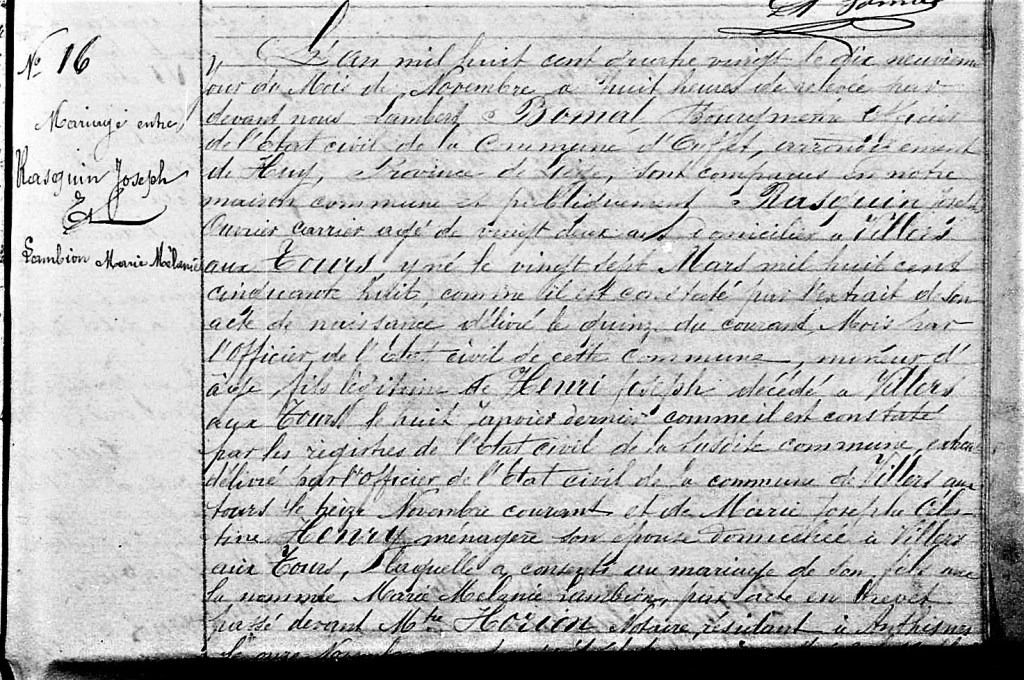 N° 16
Mariage entre
Rasquin Joseph
Et
Lambion Marie Mélanie
L'an mil huit cent quatre vingt le dix neuvième
jour du Mois de Novembre a huit heures de relevée par
devant nous Lambert Bomal Bourgmestre Officier
de l'Etat civil de la Commune d'Ouffet, arrondissement
de Huy, Province de Liège, sont comparus en notre
maison commune et publiquement Rasquin Joseph
Ouvrier carrier agé de vingt deux ans domicilier a Villers
aux Tours y né le vingt sept Mars mil huit cent
cinquante huit, comme il est constaté par l'extrait d son
acte de naissance délivré le quinze du courant Mois par
l'Officier de l'Etat civil de cette commune, mineur d'
âge, fils légitime de Henri Joseph décédé a Villers
aux Tours le huit Janvier dernier comme il est constaté
par les registres de l'Etat civil de la susdite commune, extrait
délivré par l'Officier de l'Etat civil de la commune de Villers aux
tours le treize Novembre courant et de Marie Josephe Céles-
tine Henry ménagère son épouse Domiciliée a Villers
aux Tours, laquelle a consenti au mariage de son fils avec
la nommée Marie Mélanie Lambion, par acte en brevet
passé devant Mtre Horion Notaire, résidant à Anthisnes
le onze Novembre